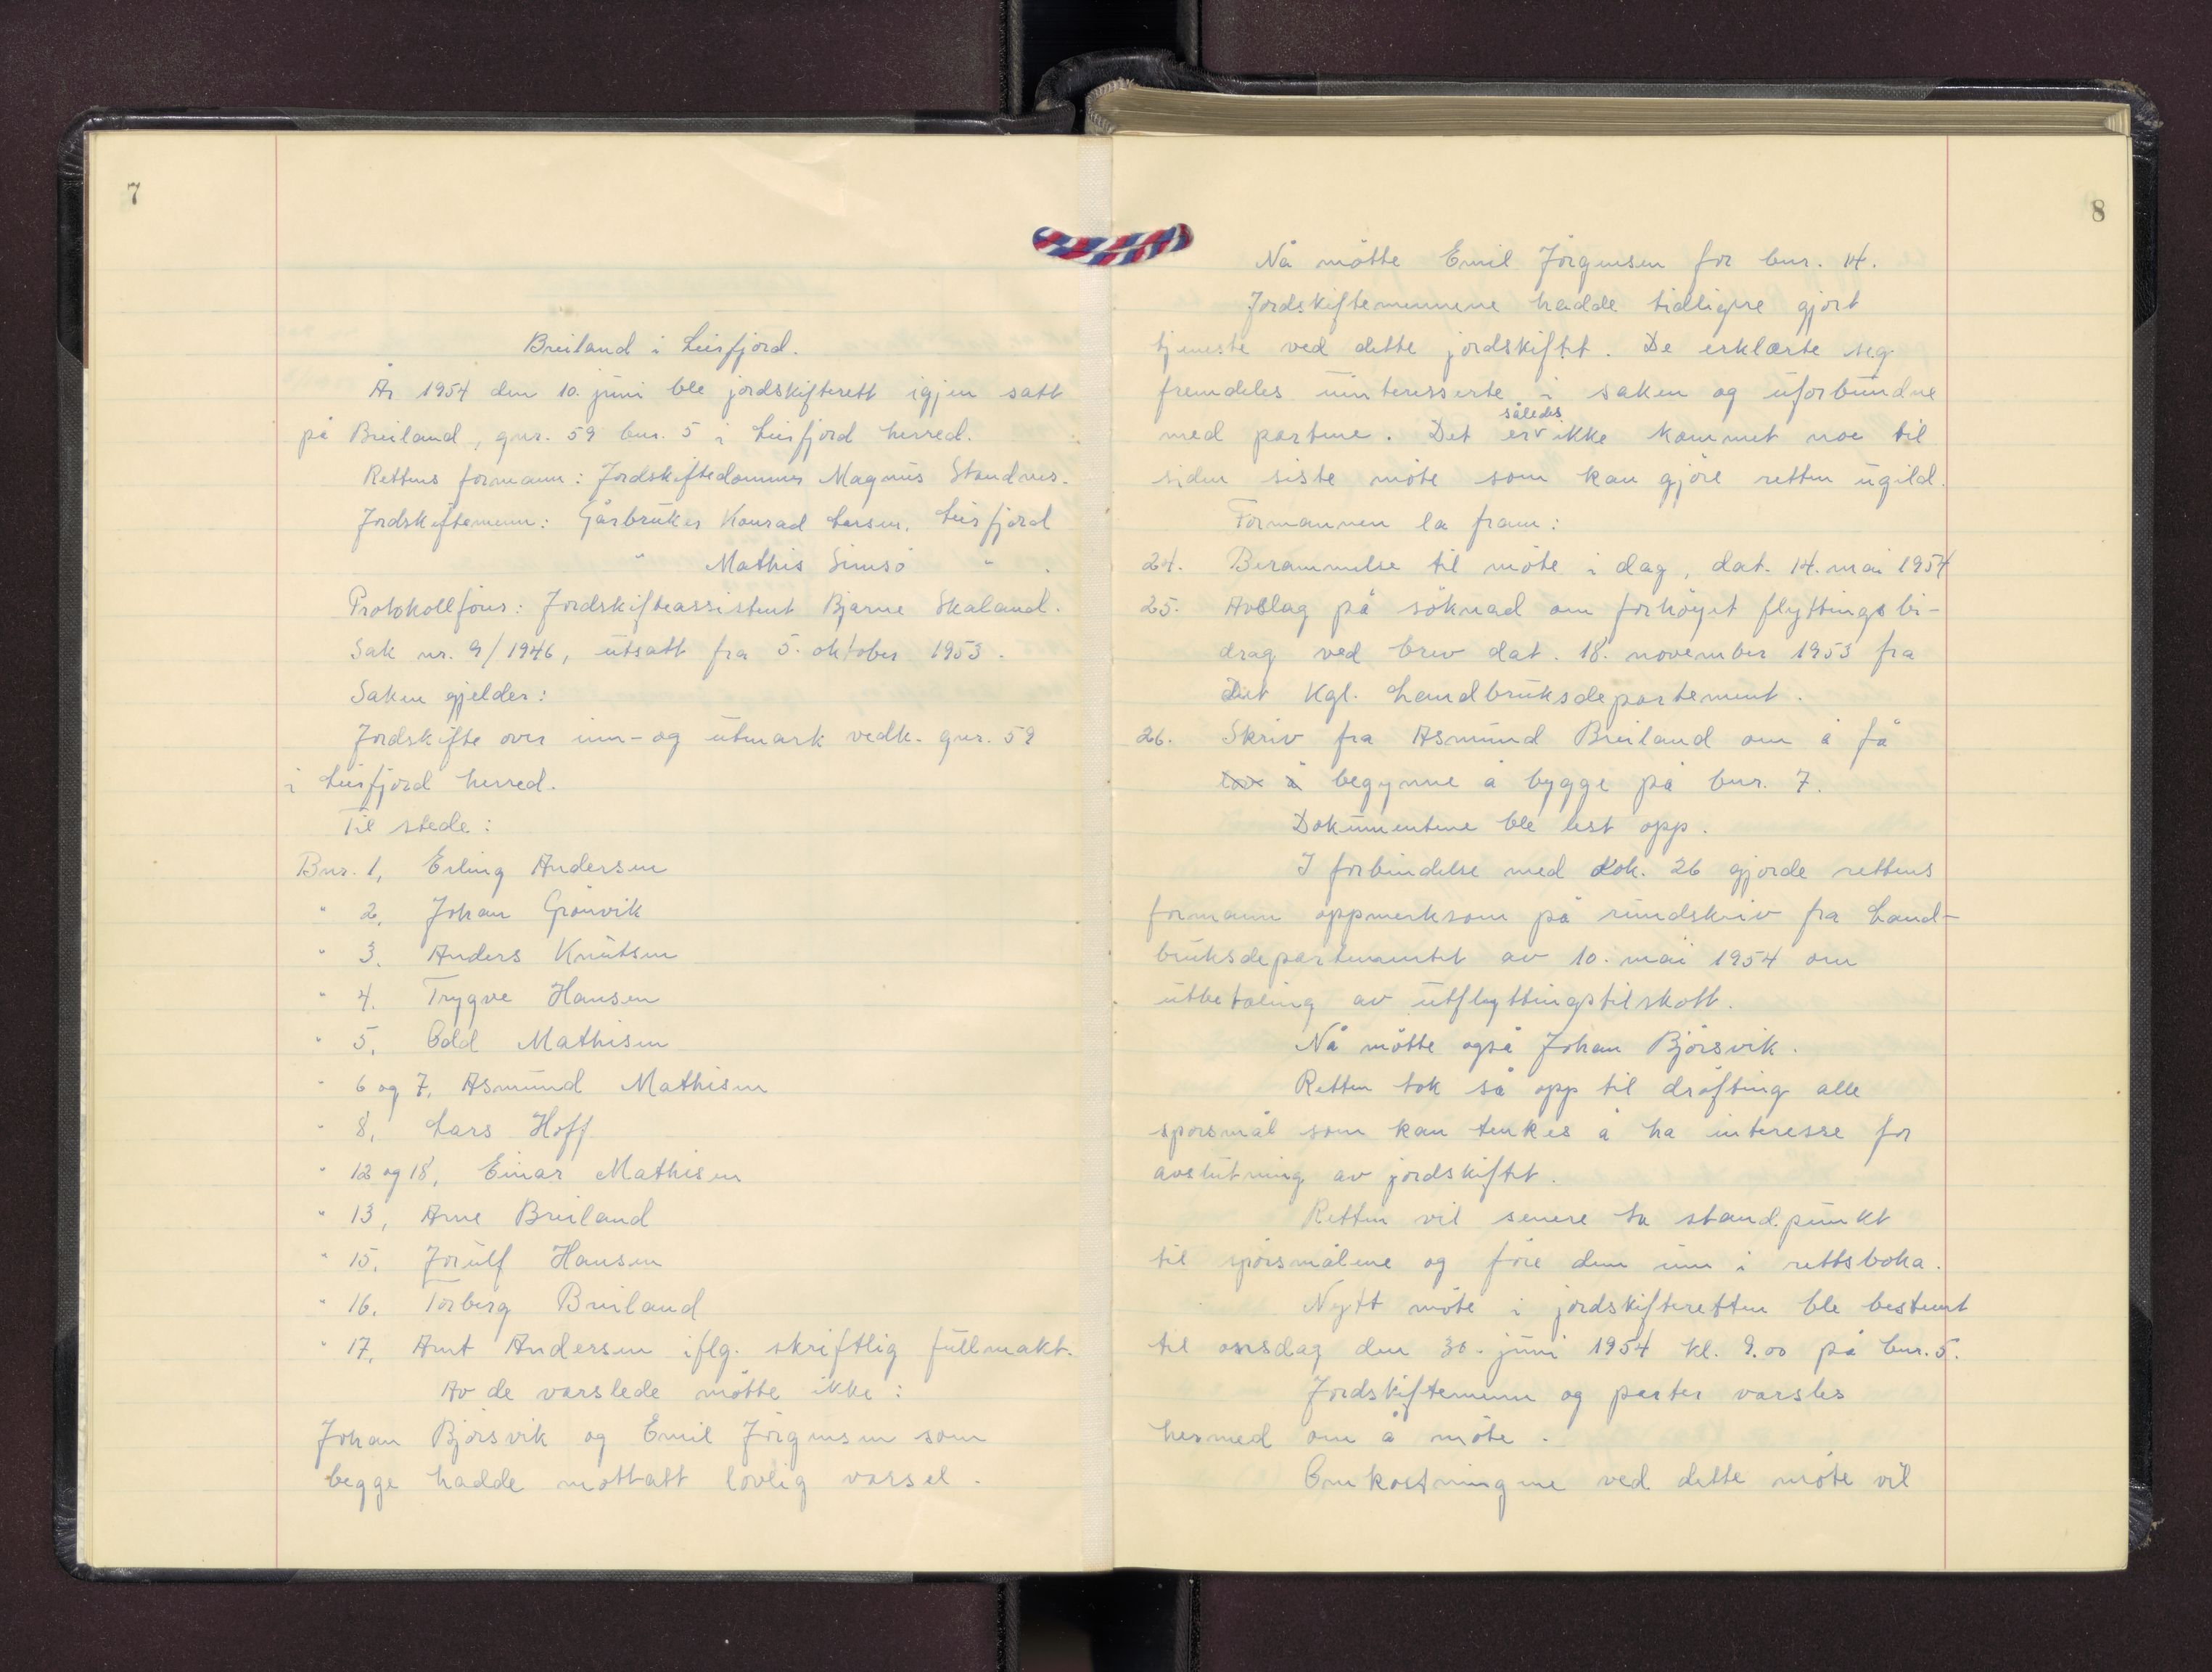 7
Breiland i Leirfjord.
År 1954 den 10. juni ble jordskifterett igjen satt
på Breiland, gnr. 59 bnr. 5 i Leirfjord herred.
Rettens formann: Jordskiftedommer Magnus Standnes.
Jordskiftemenn: Gårbruker Konrad Larsen, Leirfjord
" Mathis Simsø " .
Protokollfører: Jordskifteassistent Bjarne Skaland.
Sak nr. 9/1946, utsatt fra 5. oktober 1953.
Saken gjelder:
Jordskifte over inn- og utmark vedk. gnr. 59
i Leirfjord herred.
Til stede:
Bnr. 1, Erling Andersen
" 2, Johan Grønvik
" 3, Anders Knutsen
" 4. Trygve Hansen
" 5, Odd Mathisen
" 6 og 7, Asmund Mathisen
" 8, Lars Hoff
" 12 og 18, Einar Mathisen
" 13, Arne Breiland
" 15, Jorulf Hansen
" 16, Torberg Breiland
" 17, Arnt Andersen iflg. skriftlig fullmakt.
Av de varslede møtte ikke:
Johan Bjørsvik og Emil Jørgensen som
begge hadde mottatt lovlig varsel.
8
Nå møtte Emil Jørgensen for bnr. 14.
Jordskiftemennene hadde tidligere gjort
tjeneste ved dette jordskiftet. De erklærte seg
fremdeles uinteresserte i saken og uforbundne
således
med partene. Det er ikke kommet noe til
siden siste møte som kan gjøre retten ugild.
Formannen la fram:
24. Berammelse til møte i dag, dat. 14. mai 1954
25. Avslag på søknad om forhøyet flyttingsbi-
drag ved brev dat. 18. november 1953 fra
Det Kgl. Landbruksdepartement.
26. Skriv fra Asmund Breiland om å få
lov å begynne å bygge på bnr. 7.
Dokumentene ble lest opp.
I forbindelse med dok. 26 gjorde rettens
formann oppmerksom på rundskriv fra Land-
bruksdepartementet av 10. mai 1954 om
utbetaling av utflyttingstilskott.
Nå møtte også Johan Bjørsvik.
Retten tok så opp til drøfting alle
spørsmål som kan tenkes å ha interesse for
avslutning av jordskiftet.
Retten vil senere ta standpunkt
til spørsmålene og føre dem inn i rettsboka.
Nytt møte i jordskifteretten ble bestemt
til onsdag den 30. juni 1954 kl. 9.00 på bnr. 5.
Jordskiftemenn og parter varsles
hermed om å møte.
Omkostningene ved dette møte vil